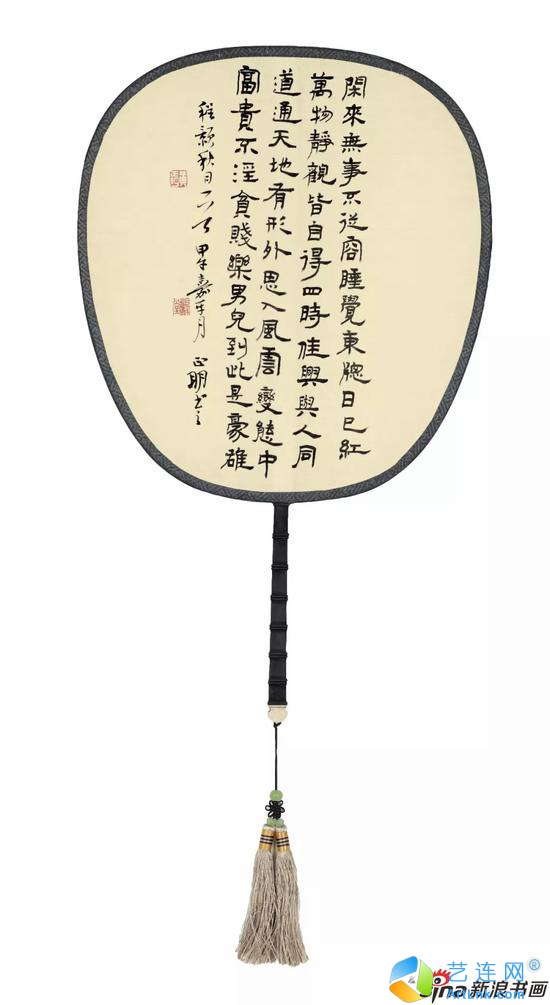 閑來無事不從容睡覺東牕日已紅
萬物靜觀皆自得四時佳興與人同
道通天地有形外思入風雲變態中
富貴不淫貧賤樂男兒到此是豪雄
程顥秋日一首 甲午嘉平月 正明書之
艺连网®
sina新浪书画